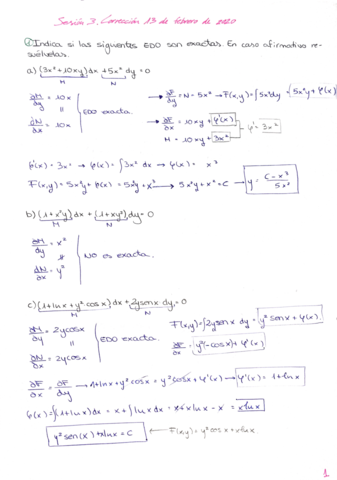 Sesión 3. Corrección 13 de febrero de 2020
Indica si las siguientes EDO son exactas. En caso afirmativo re-
suélvelas.
a) (3x²+10xy)dx + 5x² dy = 0
M N
∂M/∂y = 10x
∂N/∂x = 10x
EDO exacta.
∂F/∂y = N = 5x² → F(x,y) = ∫5x²dy = 5x²y + φ(x)
∂F/∂x = 10xy + φ'(x)
M = 10xy + 3x²
φ' = 3x²
φ'(x) = 3x² → φ(x) = ∫3x² dx → φ(x) = x³
F(x,y) = 5x²y + φ(x) = 5x²y + x³ → 5x²y + x³ = C → y = (C - x³)/5x²
b) (1+x²y)dx + (1+xy²)dy = 0
M N
∂M/∂y = x²
∂N/∂x = y²
NO es exacta.
c) (1+lnx+y²cosx)dx + 2ysenx dy = 0
M N
∂M/∂y = 2ycosx
∂N/∂x = 2ycosx
EDO exacta.
F(x,y) = ∫2ysenx dy = y²senx + φ(x).
∂F/∂x = y²(-cosx) + φ'(x)
∂F/∂x = ∂F/∂y → 1+lnx+y²cosx = y²cosx + φ'(x) → φ'(x) = 1+lnx
φ(x) = ∫(1+lnx)dx = x + ∫lnx dx = x + xlnx - x = xlnx
y²sen(x) + xlnx = C ← F(x,y) = y²cosx + xlnx.
1